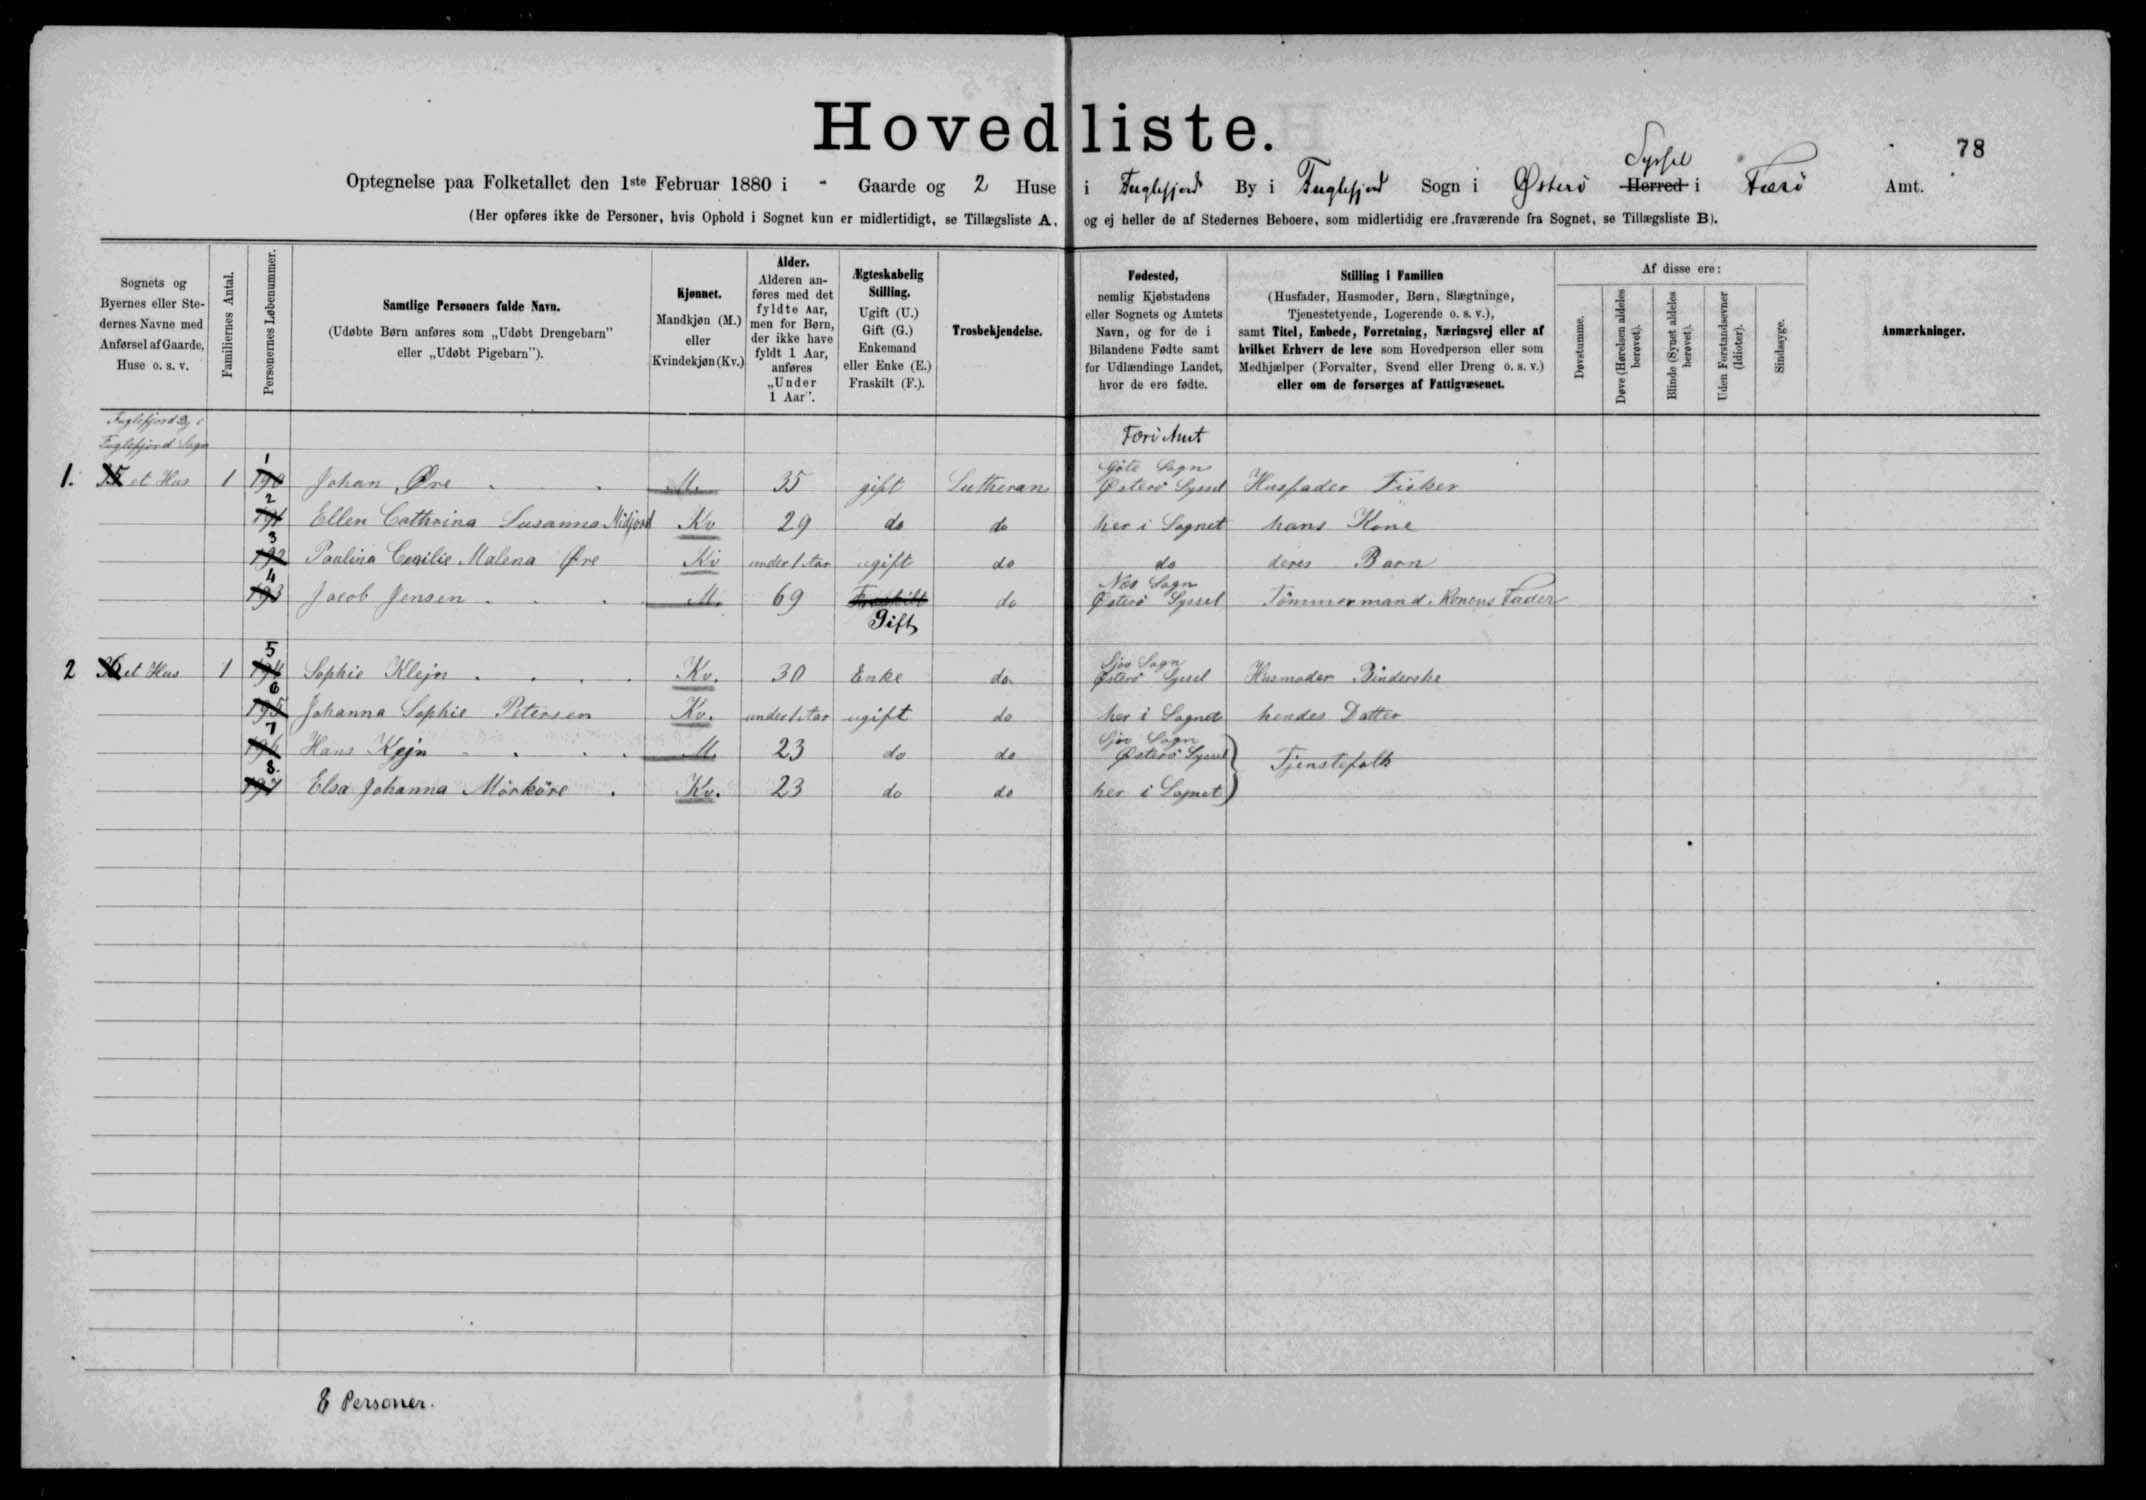 Hovedliste.
78
Optegnelse paa Folketallet den 1ste Februar 1880 i - Gaarde og 2 Huse i Fuglefjord By i Fuglefjord Sogn i Østerø Herred Syssel i Færø Amt.
(Her opføres ikke de Personer, hvis Ophold i Sognet kun er midlertidigt, se Tillægsliste A, og ej heller de af Stedernes Beboere, som midlertidig ere fraværende fra Sognet, se Tillægsliste B).
Sognets og Byernes eller Stedernes Navne med Anførsel af Gaarde, Huse o. s. v.
Familiernes Antal.
Personernes Løbenummer.
Samtlige Personers fulde Navn.
(Udøbte Børn anføres som „Udøbt Drengebarn" eller „Udøbt Pigebarn").
Kjønnet.
Mandkjøn (M.) eller Kvindekjøn (Kv.)
Alder.
Alderen anføres med det fyldte Aar, men for Børn, der ikke have fyldt 1 Aar, anføres „Under 1 Aar".
Ægteskabelig Stilling.
Ugift (U.) Gift (G.) Enkemand eller Enke (E.) Fraskilt (F.).
Trosbekjendelse.
Fødested,
nemlig Kjøbstadens eller Sognets og Amtets Navn, og for de i Bilandene Fødte samt for Udlændinge Landet, hvor de ere fødte.
Stilling i Familien
(Husfader, Husmoder, Børn, Slægtninge, Tjenestetyende, Logerende o. s. v.), samt Titel, Embede, Forretning, Næringsvej eller af hvilket Erhverv de leve som Hovedperson eller som Medhjælper (Forvalter, Svend eller Dreng o. s. v.) eller om de forsørges af Fattigvæsenet.
Af disse ere:
Døvstumme.
Døve (Hørelsen aldeles berøvet).
Blinde (Synet aldeles berøvet).
Uden Forstandsevner (Idioter).
Sindssyge.
Anmærkninger.
Fuglefjord By i
Fuglefjord Sogn
Færö Amt
1. 15 et Hus 1 190 1 Johan Øre M. 35 gift Lutheran Gjöte Sogn Østerö Syssel Husfader Fisker
191 2 Ellen Cathrina Susanna Midjord Kv 29 do do her i Sognet hans Kone
192 3 Paulina Cecilie Malena Øre Kv under 1 Aar ugift do do deres Barn
193 4 Jacob Jensen M. 69 Fraskilt Gift do Næs Sogn Østerö Syssel Tömmermand, Konens Fader
2 et Hus 1 194 5 Sophie Klejn Kv. 30 Enke do Sjov Sogn Østerö Syssel Husmoder Binderske
195 6 Johanna Sophie Petersen Kv. under 1 Aar ugift do her i Sognet hendes Datter
196 7 Hans M 23 do do Sjov Sogn Østerö Syssel Tjenstefolk
197 8 Elsa Johanna Mörköre Kv. 23 do do her i Sognet
8 Personer.